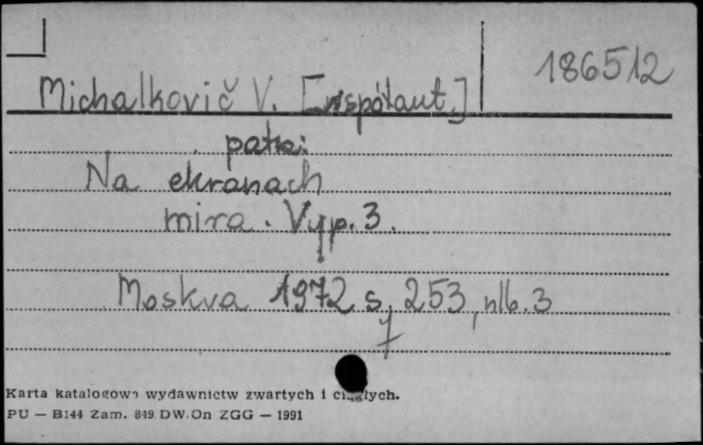 186512
Michalkovič V. [współaut.]
patrz:
Na ekranach
mira. Vyp. 3.
Moskva 1972 s. 253, nlb. 3
Karta katalogowa wydawnictw zwartych i ciągłych.
PU — B144 Zam. 849 DW.On ZGG — 1991